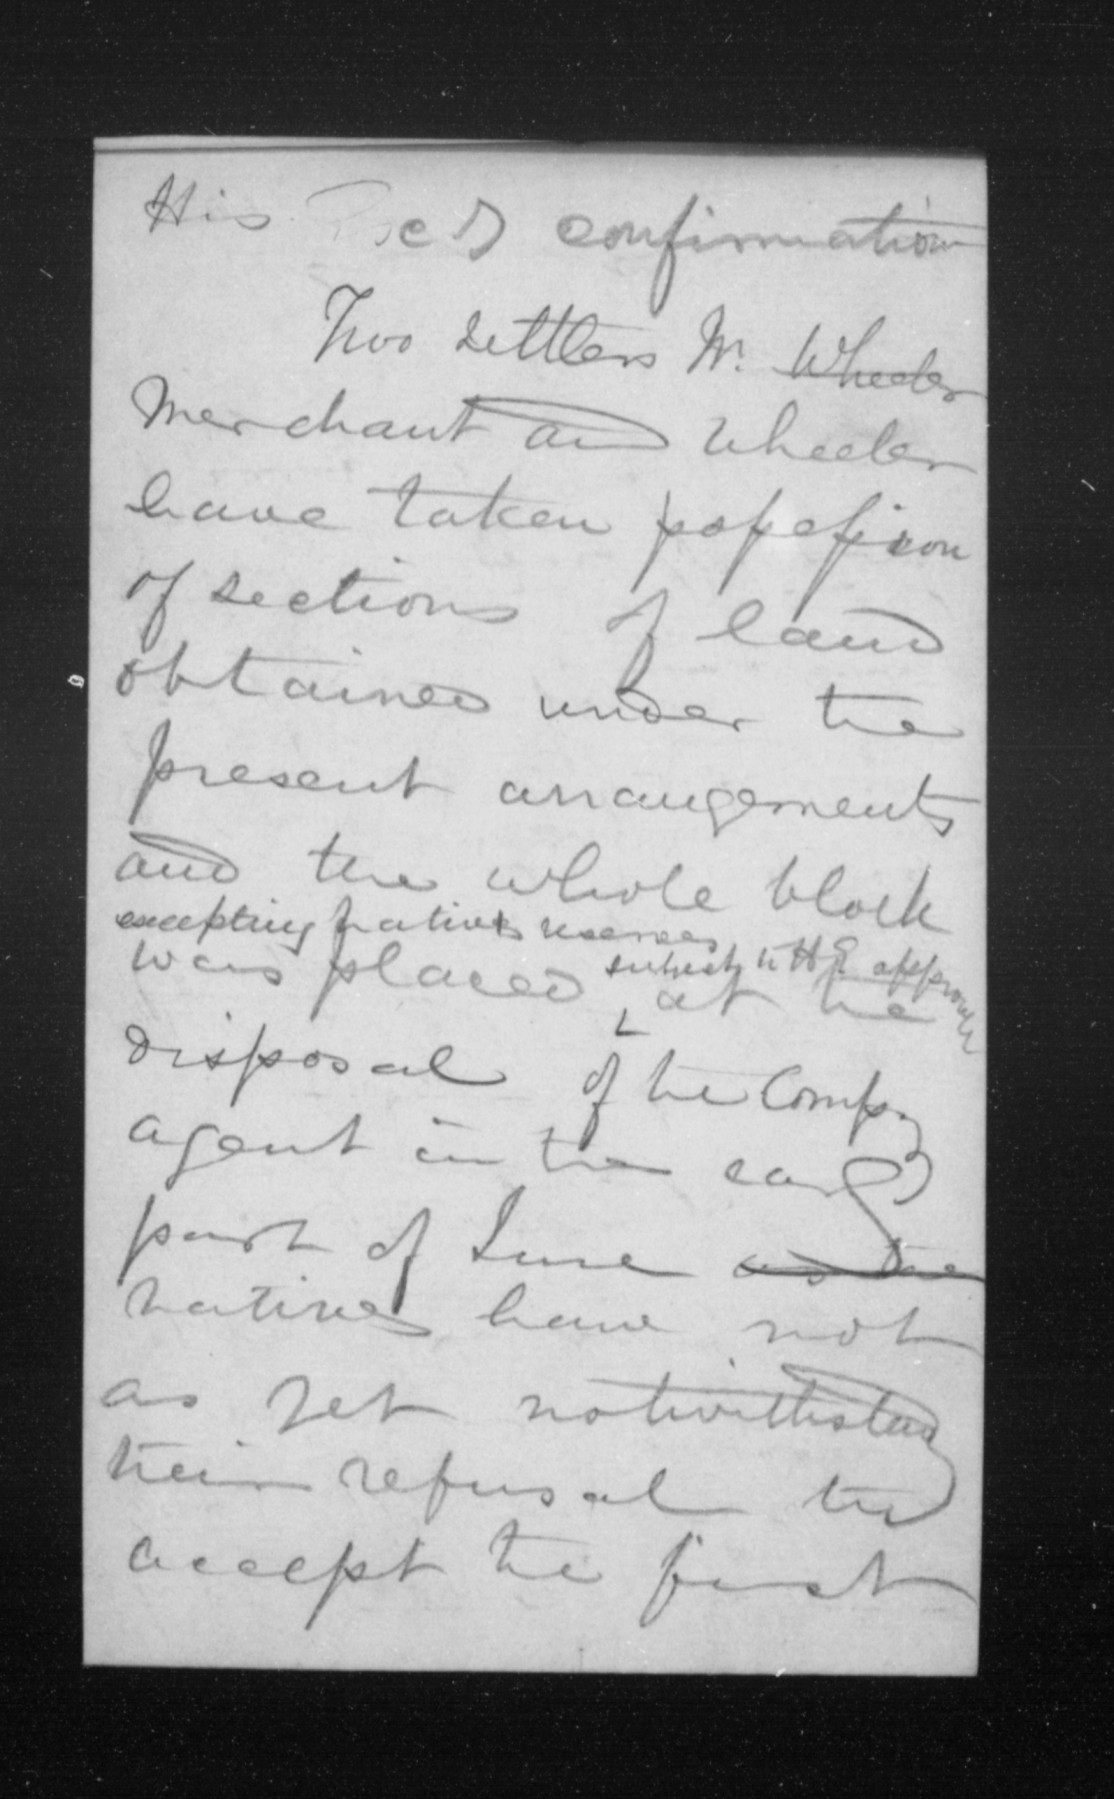 His confirmation
Two settlers Mr. Wheeler
Merchant and Wheeler
have taken possession
of sections of land
obtained under the
present arrangements
and the whole block
excepting natives reserves
was placed subject to H E approval at the
disposal of the Compy
agent in the early
part of June as the
natives have not
as yet notwithstandg
their refusal to
accept the first